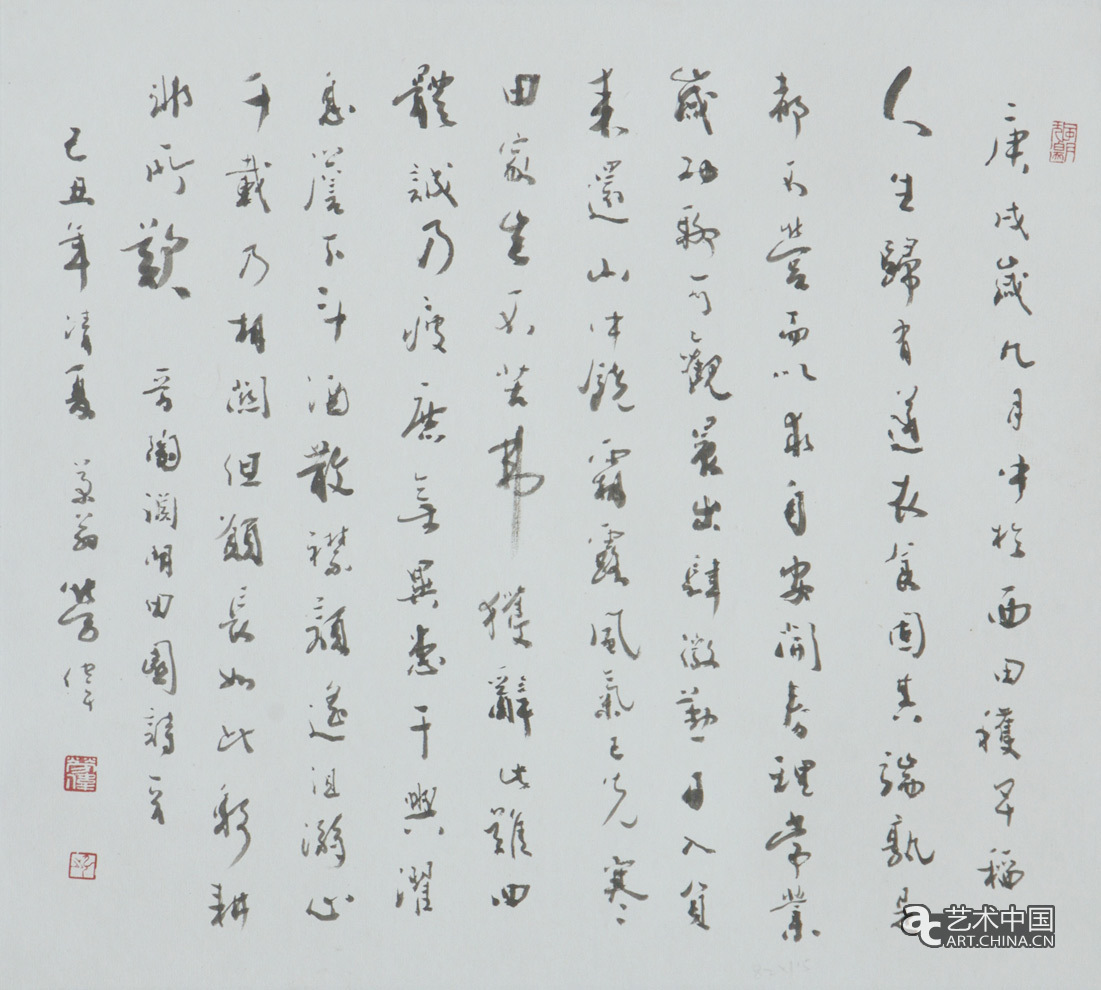 庚戌歲九月中於西田穫早稻
人生歸有道衣食固其端孰是
都不營而以求自安開春理常業
歲功聊可觀晨出肆微勤日入負
耒還山中饒霜露風氣已先寒
田家豈不苦弗獲辭此難四
體誠乃疲庶無異患干盥濯
息簷下斗酒散襟顏遙沮溺心
千載乃相關但願長如此躬耕
非所歎 晉陶淵明田園詩一首
己丑年清夏 翁 勞偉
艺术中国
ART.CHINA.CN